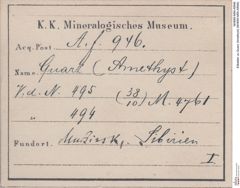 K. K. Mineralogisches Museum.
Acq. Post A. f. 946.
Name Quarz (Amethyst)
V. d. N. 495 (38/10) M. 4761
" 494
Fundort. Mursinsk, Sibirien
I